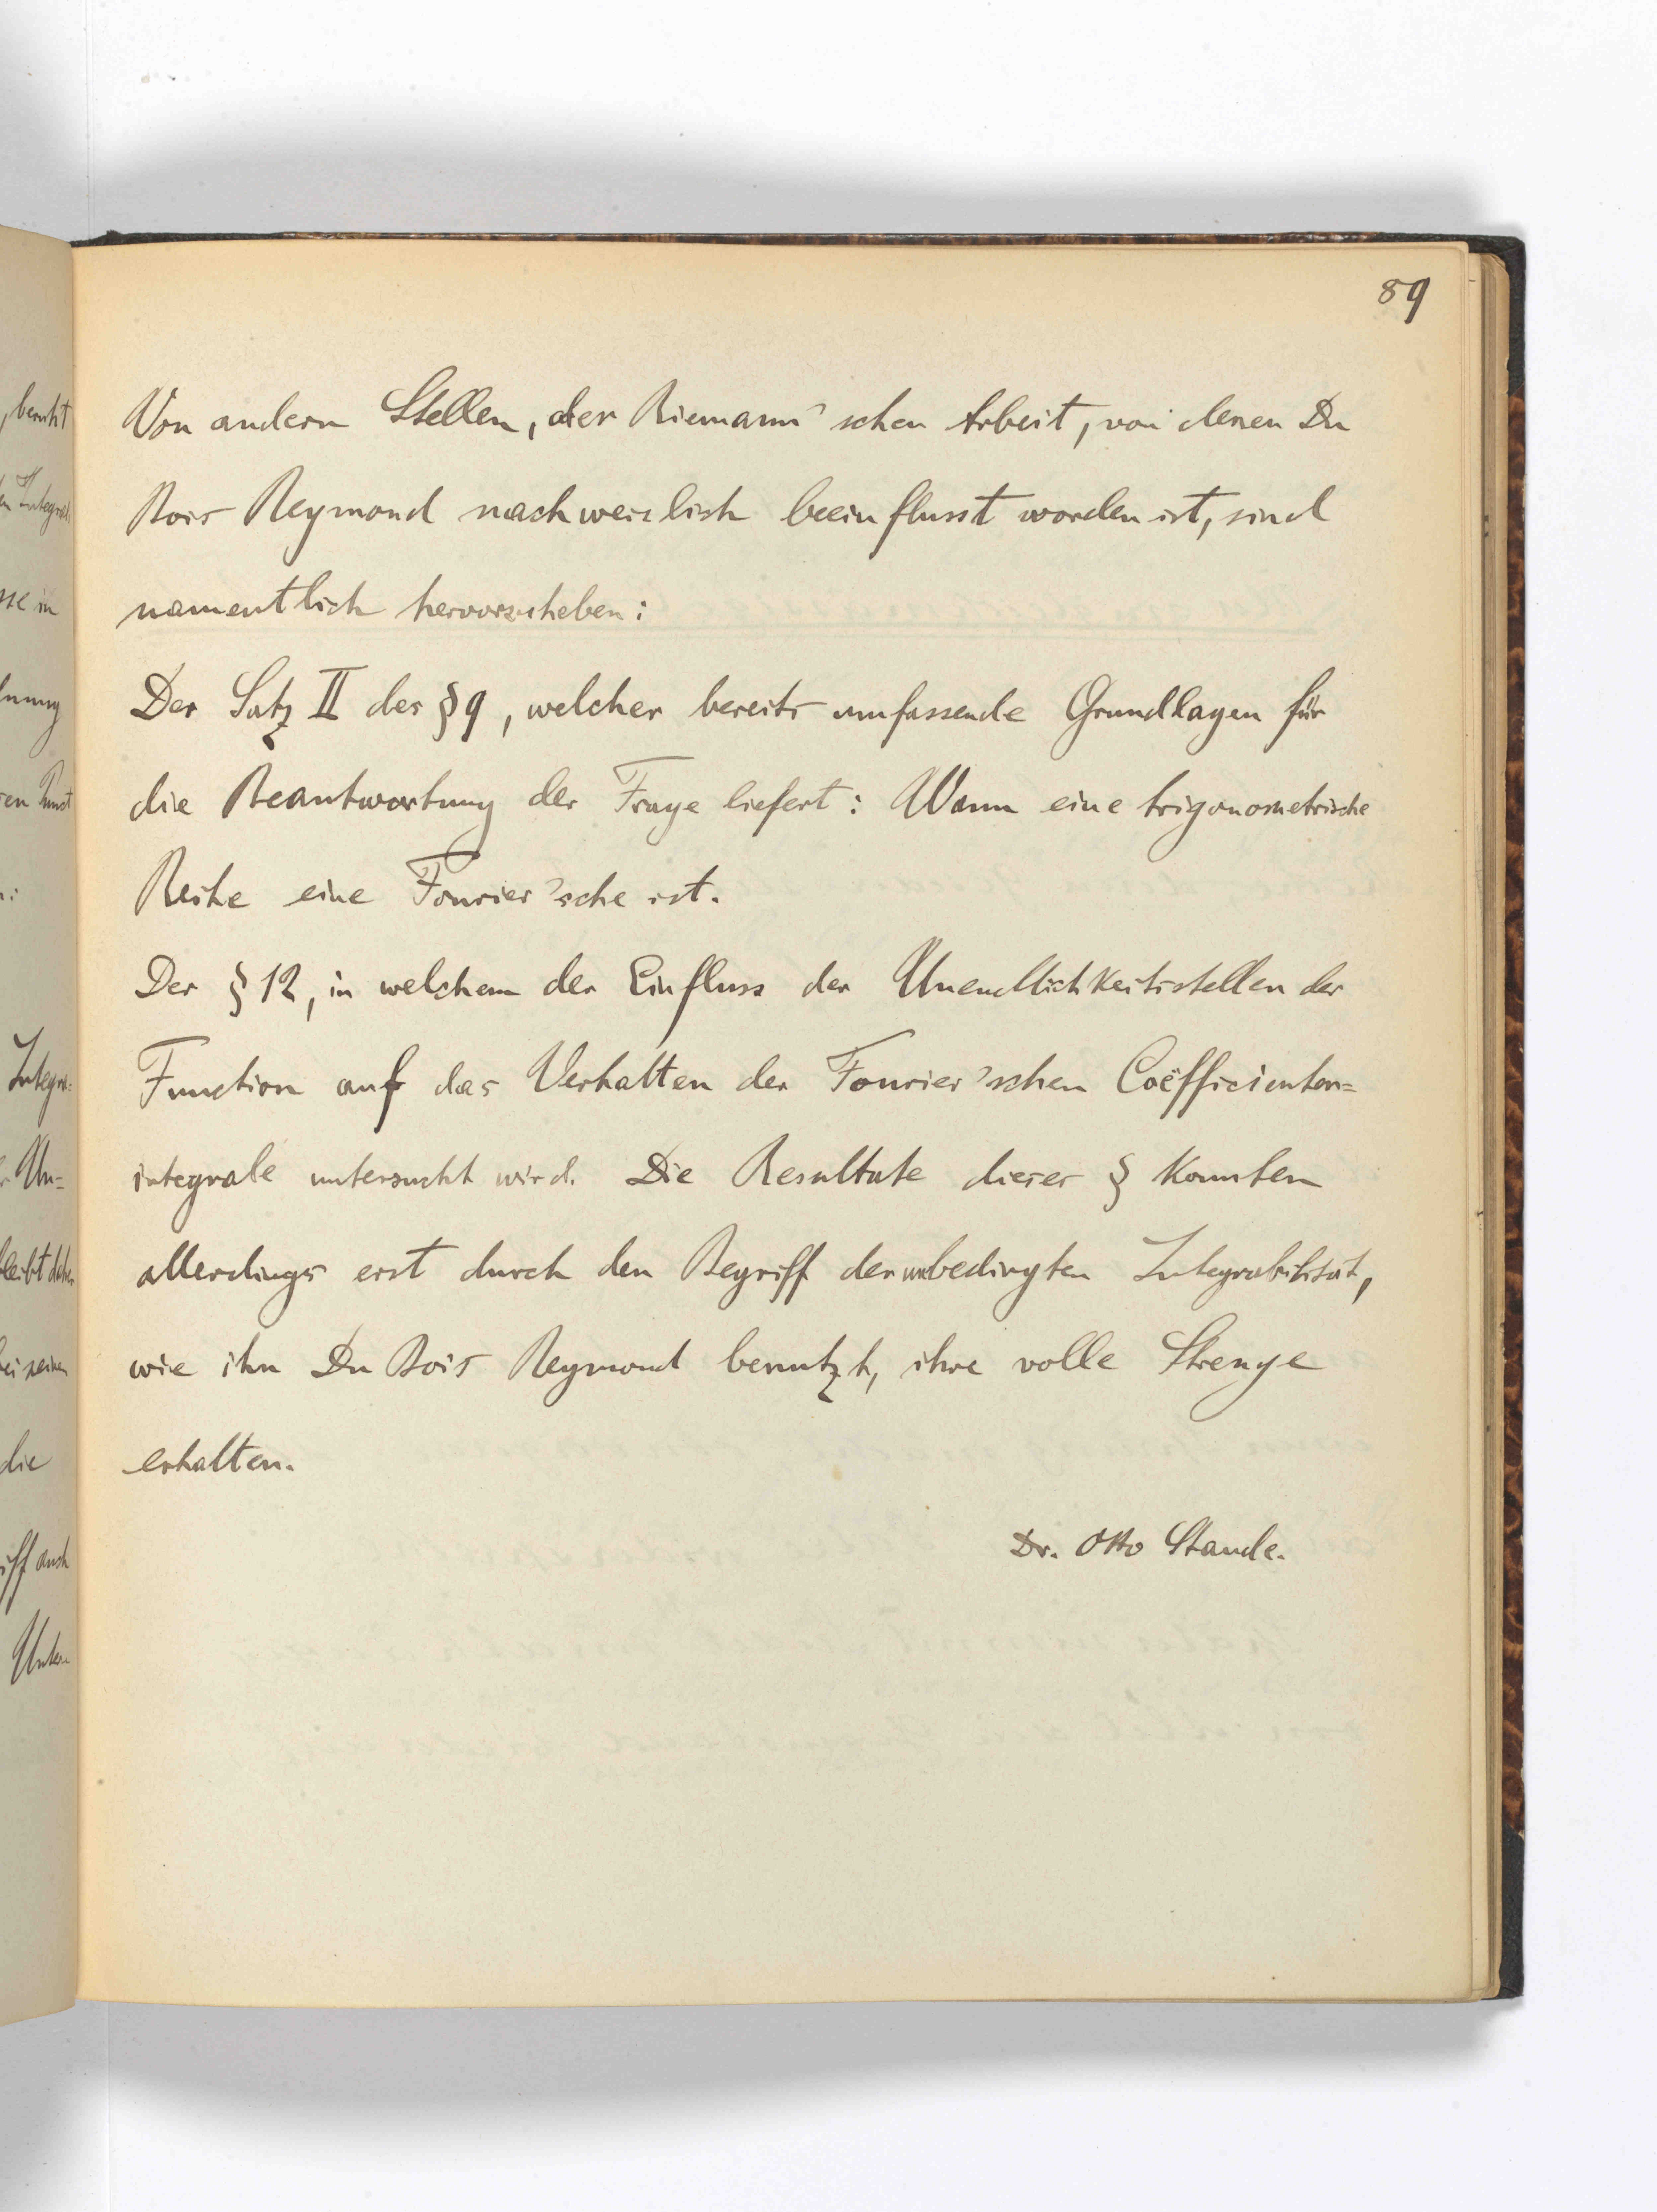 89
Von andern Stellen, der Riemann'schen Arbeit, von denen Du
Bois Reymond nachweislich beeinflusst worden ist, sind
namentlich hervorzuheben:
Der Satz II des § 9, welcher bereits umfassende Grundlagen für
die Beantwortung der Frage liefert: Wann eine trigonometrische
Reihe eine Fourier'sche ist.
Der § 12, in welchem der Einfluss der Unendlichkeitsstellen der
Function auf das Verhalten der Fourier'schen Coëfficienten=
integrale untersucht wird. Die Resultate dieses § konnten
allerdings erst durch den Begriff der unbedingten Integrabilität,
wie ihn Du Bois Reymond benutzt, ihre volle Strenge
erhalten.
Dr. Otto Staude.
beruht
Integral
sse in
nung
Integra=
Un=
bleibt daher
bei seinen
die
iff auch